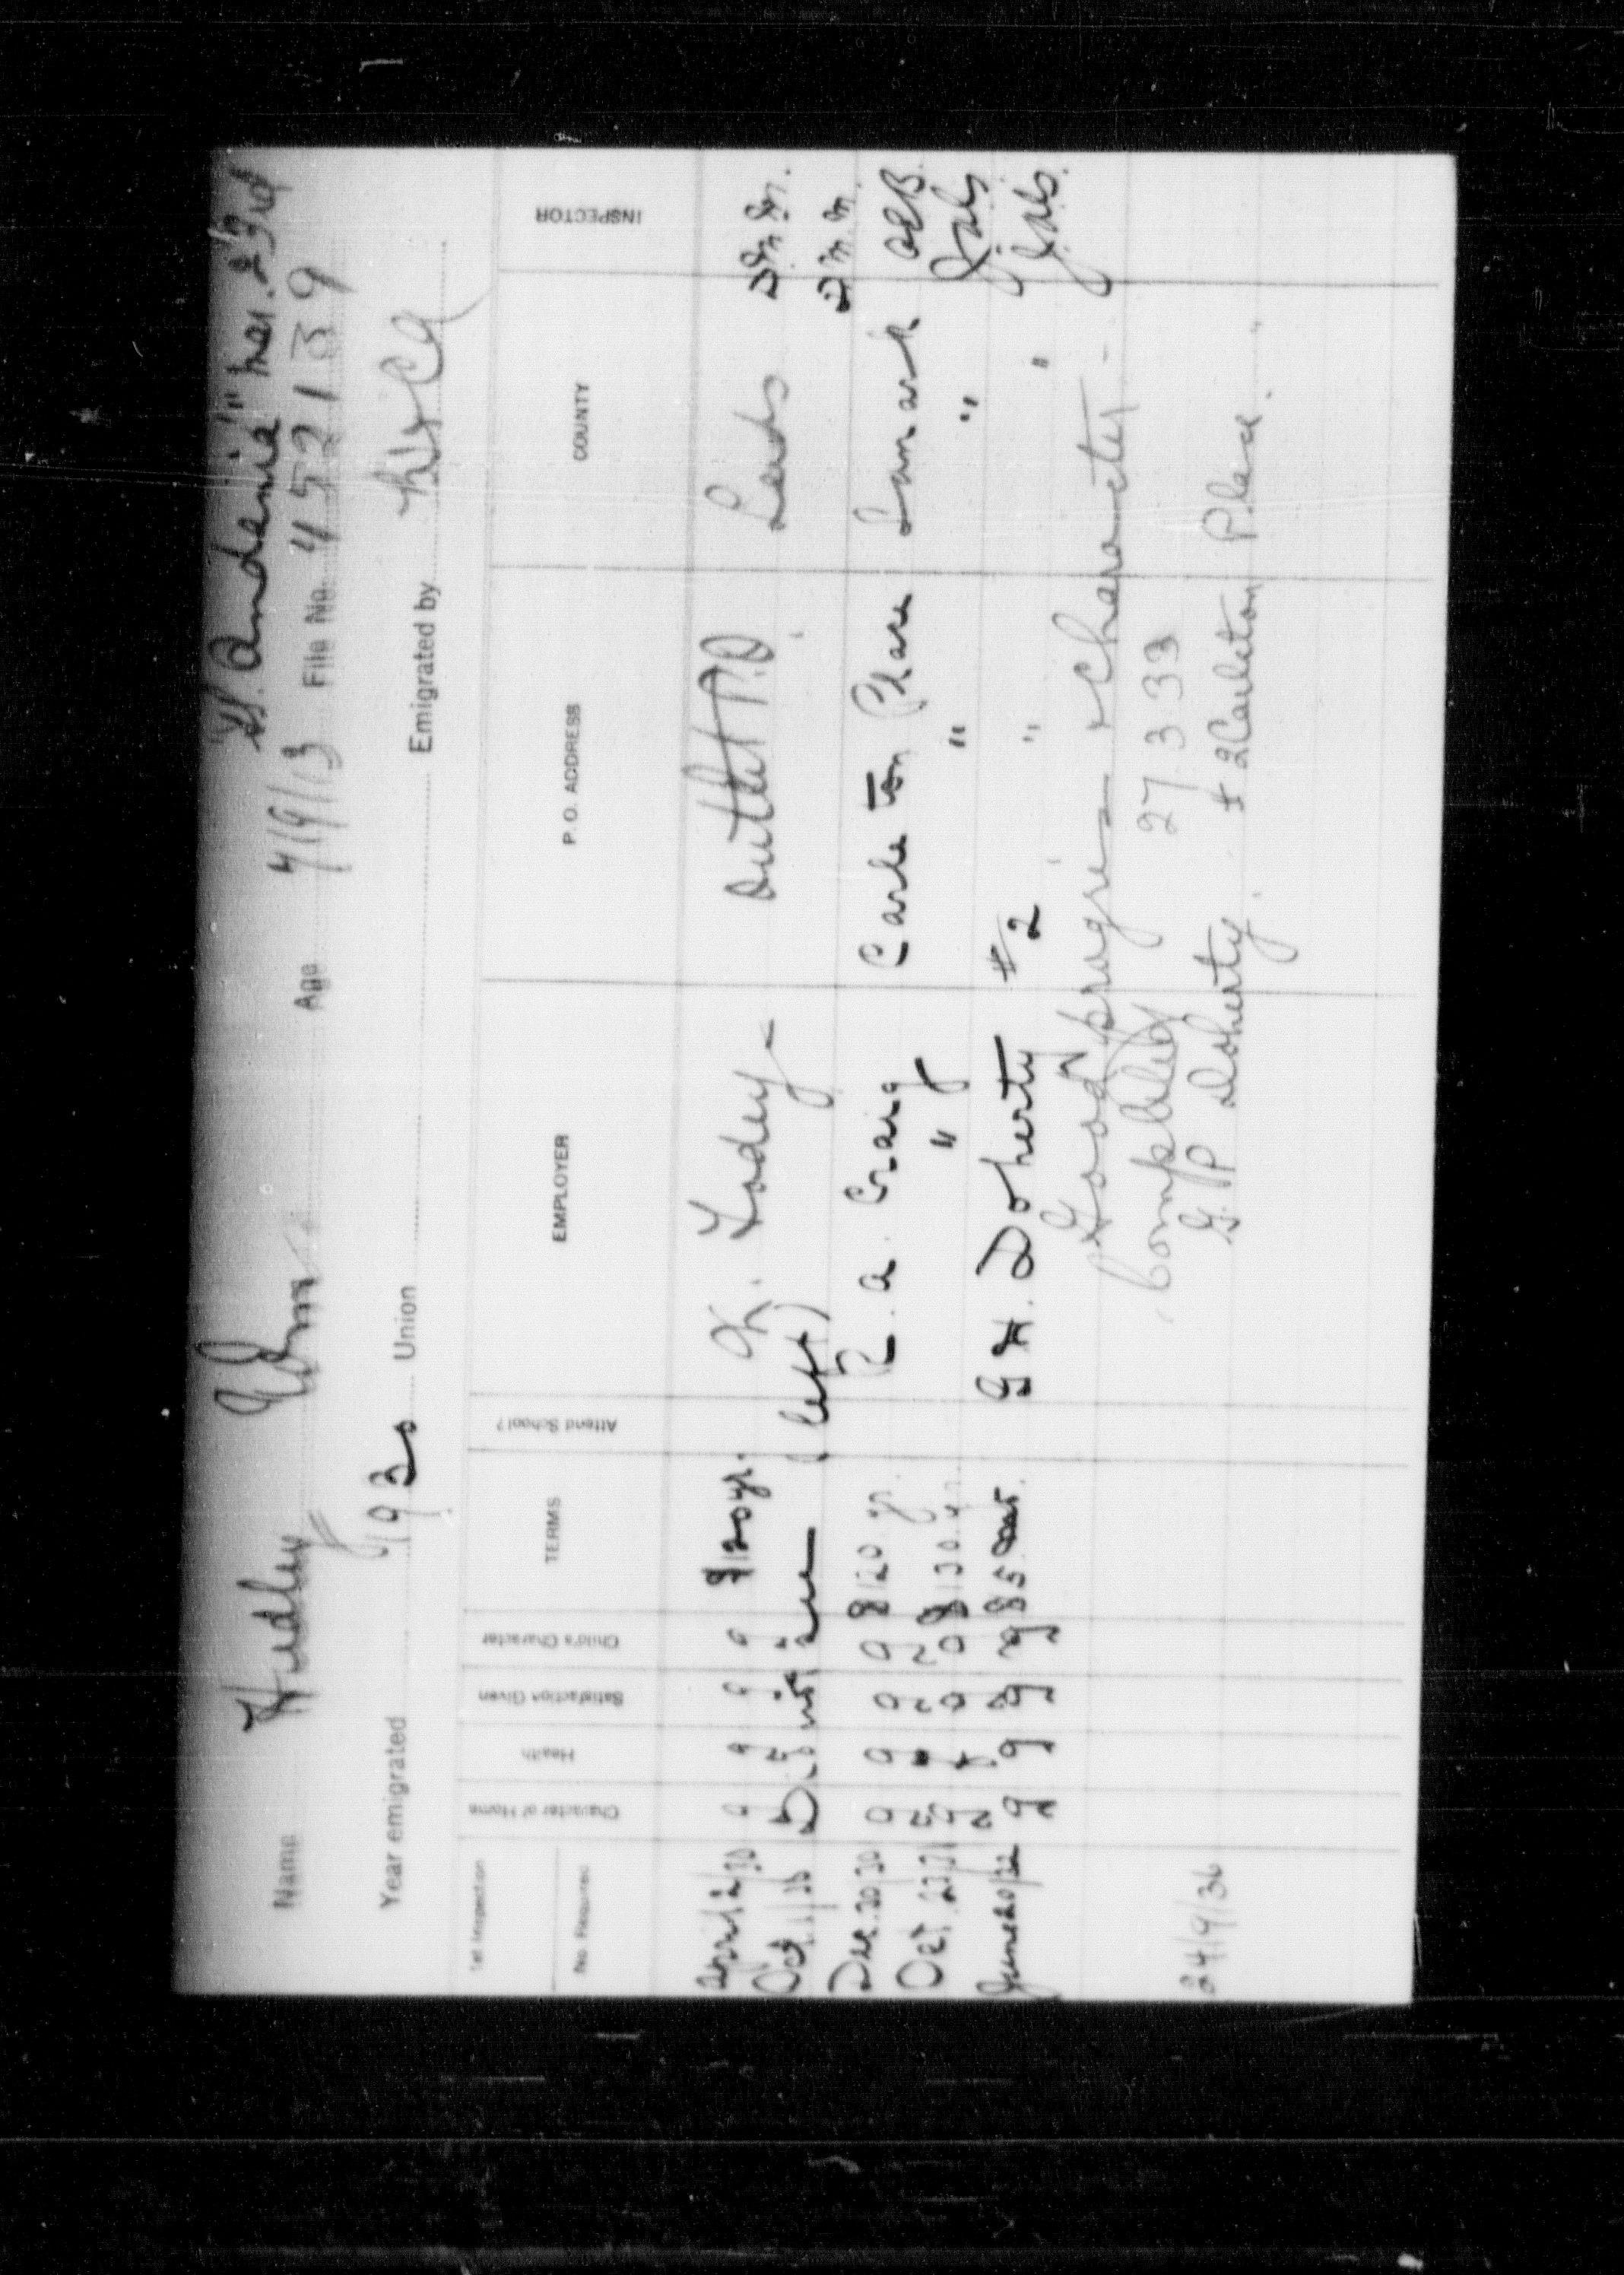 "Andania" Mar. 23rd
Name Hudley Wm Age 7/9/13 File No. 452139
Year emigrated 1930 Union Emigrated by
1st Inspection
No. Required Character of Home Health Satisfaction Given Child's Character TERMS Attend School? EMPLOYER P. O. ADDRESS COUNTY INSPECTOR
April 2/30 g g g g $120 yr. Outlet P.O. Leeds D.M.M.
Oct 1/30 Did not see (left) D.M.M.
Dec. 30/30 g g g g $120 yr. R. A. Craig Carleton Place Lanark
Oct. 23/31 $130 yr. " " "
June 20/32 g g g g $5 G H. Doherty #2 " "
Good progress & Character -
Completed 27.3.33
24/9/36 G. P Doherty. # 2 Carleton Place.